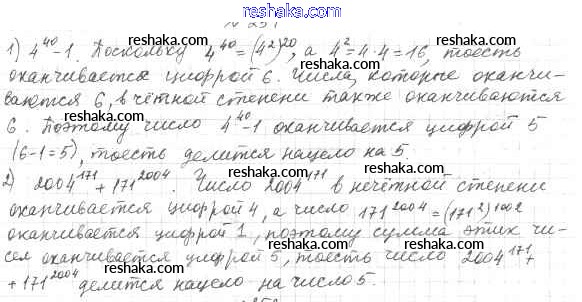 reshaka.com
№ 251
1) 4⁴⁰-1. Поскольку 4⁴⁰=(4²)²⁰, а 4²=4·4=16, тоесть
оканчивается цифрой 6. Числа, которые оканчи-
ваются 6, в чётной степени также оканчиваются
6. Поэтому число 4⁴⁰-1 оканчивается цифрой 5
(6-1=5), тоесть делится нацело на 5.
2) 2004¹⁷¹+171²⁰⁰⁴. Число 2004¹⁷¹ в нечётной степени
оканчивается цифрой 4, а число 171²⁰⁰⁴=(171²)¹⁰⁰²
оканчивается цифрой 1, поэтому сумма этих чи-
сел оканчивается цифрой 5, тоесть число 2004¹⁷¹+
+171²⁰⁰⁴ делится нацело на число 5.
reshaka.com